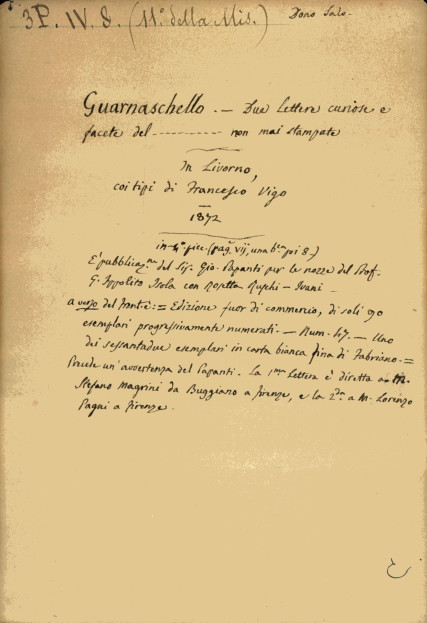 3P. IV. 8. (11º della Mis.) Dono Salo.
Guarnaschello. — Due Lettere curiose e
facete del ---------- non mai stampate
In Livorno,
coi tipi di Francesco Vigo
1872
in-4º picc. (pag. vij, una bca poi 8.)
È pubblicazne del Sig. Gio. Papanti per le nozze del Prof.
G. Ippolito Isola con Rosetta Ruschi - Ivani -
a verso del front.e: = Edizione fuor di commercio, di soli 90
esemplari progressivamente numerati. — Num. 47. — Uno
dei sessantadue esemplari in carta bianca fina di Fabriano. =
Precede un'avvertenza del Papanti. La 1ma Lettera è diretta a M.
Stefano Magrini da Buggiano a Firenze, e la 2da a M. Lorenzo
Pagni a Firenze.